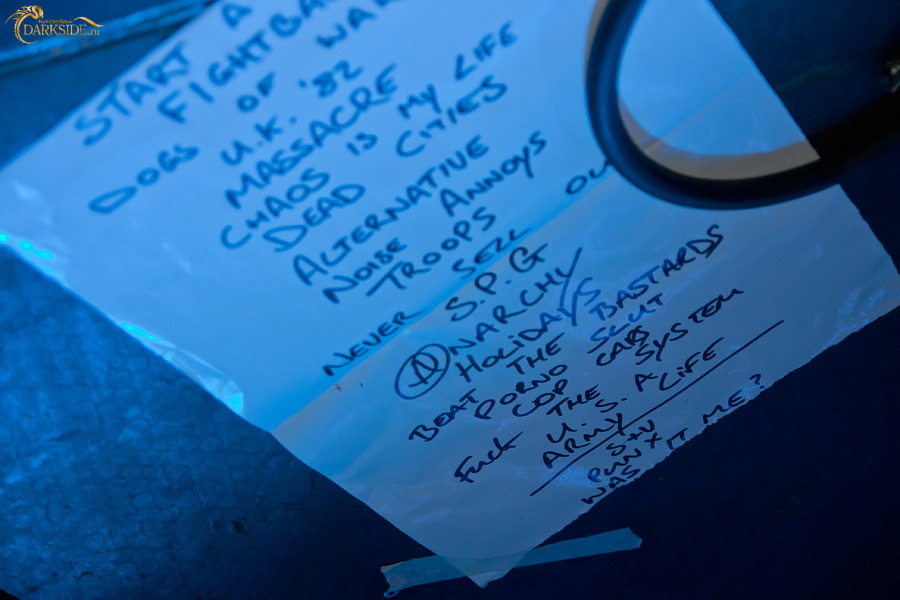 DARKSIDE.ru
START A
FIGHTBA
DOGS OF WAR
U.K. '82
MASSACRE
CHAOS IS MY LIFE
DEAD CITIES
ALTERNATIVE
NOISE ANNOYS
TROOPS
NEVER SELL OU
S.P.G
ANARCHY
HOLIDAYS
BEAT THE BASTARDS
PORNO SLUT
COP CARS
FUCK THE SYSTEM
U.S. A LIFE
ARMY
S+U
PUNX
WAS IT ME?